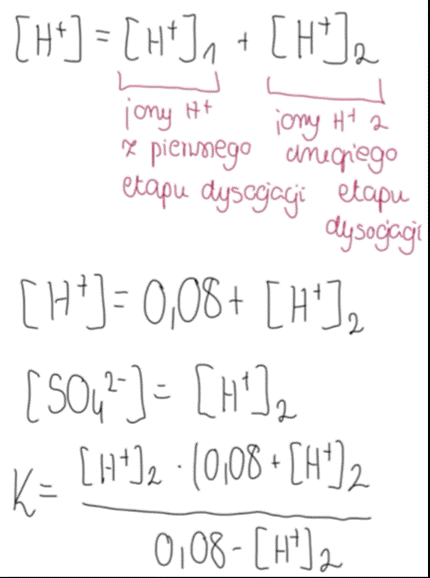 [H⁺] = [H⁺]₁ + [H⁺]₂
jony H⁺ z pierwszego etapu dysocjacji
jony H⁺ z drugiego etapu dysocjacji
[H⁺] = 0,08 + [H⁺]₂
[SO₄²⁻] = [H⁺]₂
K = [H⁺]₂ · (0,08 + [H⁺]₂
0,08 - [H⁺]₂